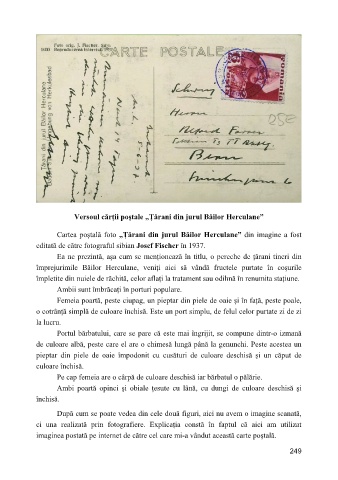 Foto orig. J. Fischer, Sibiu
CARTE POSTALĂ
ROMANIA
Țărani din jurul Băilor Herculane
25E
Herrn
Alfred
Bern
Versoul cărții poștale „Țărani din jurul Băilor Herculane”
Cartea poștală foto „Țărani din jurul Băilor Herculane” din imagine a fost
editată de către fotograful sibian Josef Fischer în 1937.
Ea ne prezintă, așa cum se menționează în titlu, o pereche de țărani tineri din
împrejurimile Băilor Herculane, veniți aici să vândă fructele purtate în coșurile
împletite din nuiele de răchită, celor aflați la tratament sau odihnă în renumita stațiune.
Ambii sunt îmbrăcați în porturi populare.
Femeia poartă, peste ciupag, un pieptar din piele de oaie și în față, peste poale,
o cotrânță simplă de culoare închisă. Este un port simplu, de felul celor purtate zi de zi
la lucru.
Portul bărbatului, care se pare că este mai îngrijit, se compune dintr-o izmană
de culoare albă, peste care el are o chimesă lungă până la genunchi. Peste acestea un
pieptar din piele de oaie împodobit cu cusături de culoare deschisă și un căput de
culoare închisă.
Pe cap femeia are o cârpă de culoare deschisă iar bărbatul o pălărie.
Ambi poartă opinci și obiale țesute cu lână, cu dungi de culoare deschisă și
închisă.
După cum se poate vedea din cele două figuri, aici nu avem o imagine scanată,
ci una realizată prin fotografiere. Explicația constă în faptul că aici am utilizat
imaginea postată pe internet de către cel care mi-a vândut această carte poștală.
249